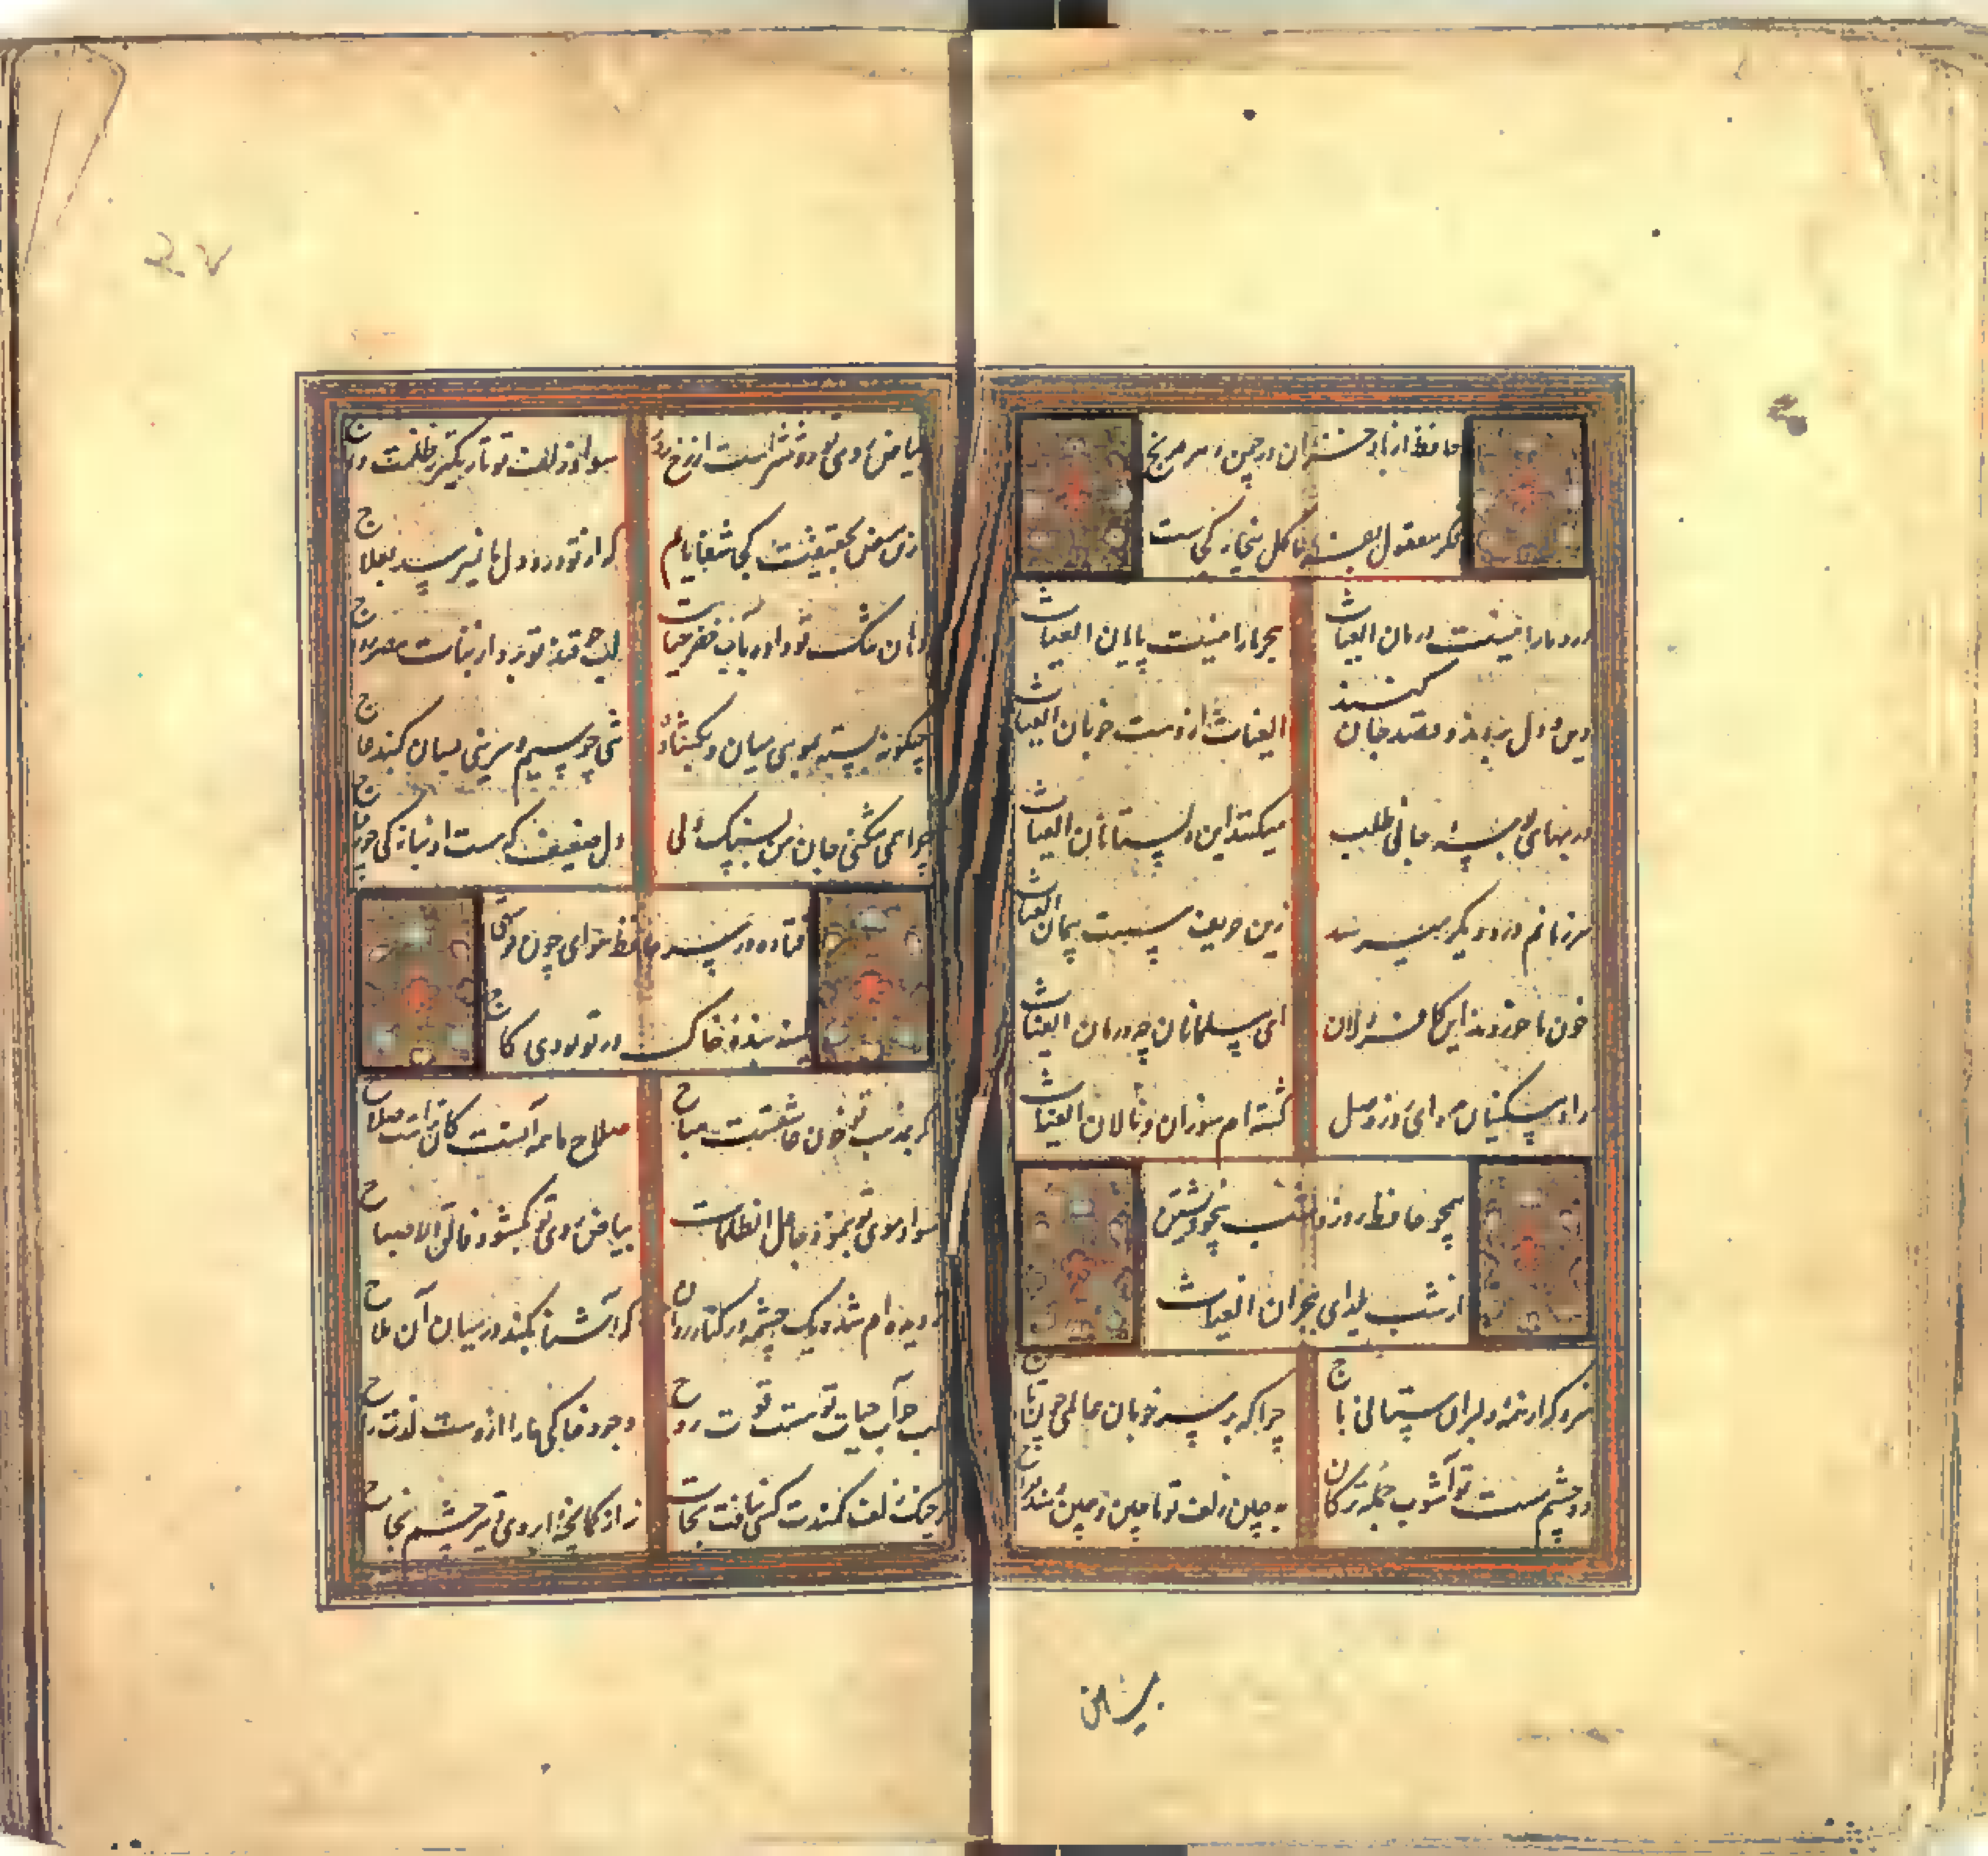 حافظ از باد خزان در چمن دهر مرنج
فکر معقول بفرما گل بیخار کجاست
درد ما را نیست درمان الغیاث
هجر ما را نیست پایان الغیاث
دین و دل بردند و قصد جان کنند
الغیاث از دست خوبان الغیاث
در بهای بوسه جانی طلب
میکنند این دلستانان الغیاث
هر زمانم درد دیگر میرسد
زین حریف سست پیمان الغیاث
خون ما خوردند این کافر دلان
ای مسلمانان چه درمان الغیاث
داد مسکینان ده ای روز وصل
گشته ام سوزان و نالان الغیاث
همچو حافظ روز و شب بیخویشتن
از شب یلدای هجران الغیاث
سزد که از همه دلبران ستانی باج
چرا که بر سر خوبان عالمی چون تاج
دو چشم مست تو آشوب جمله ترکستان
به چین زلف تو ماچین و چین
بیاض
بیاض روی تو روشنتر است از رخ روز
سواد زلف تو تاریکتر ز ظلمت داج
ازین مرض بحقیقت کجا شفا یابم
که از تو درد دل ما نمیرسد بعلاج
دهان تنگ تو داده بآب خضر حیات
لب چو قند تو برد از نبات مصر رواج
چگونه بسته موی میان
تنی چو سیم و سرینی بسان گنبد عاج
چرا همی شکنی جان من ز سنگ دلی
دل ضعیف که هست او نازکی چو زجاج
فتاده در سر حافظ هوای چون تو
کمینه بنده خاک در تو بودی کاج
که بمذهب تو خون عاشقست مباح
صلاح ما همه آنست کان تراست صلاح
سواد موی تو بنمود جاعل الظلمات
بیاض روی تو بگشود فالق الاصباح
ز دیده ام شده یک چشمه در کنار روان
که آشنا نکند در میان آن ملاح
لب چو آب حیات تو هست قوت روح
وجود خاکی ما را ازوست لذت راح
ز چنگ زلف کمندت کسی نیافت نجات
نه از کمانچه ابروی و تیر چشم نجاح